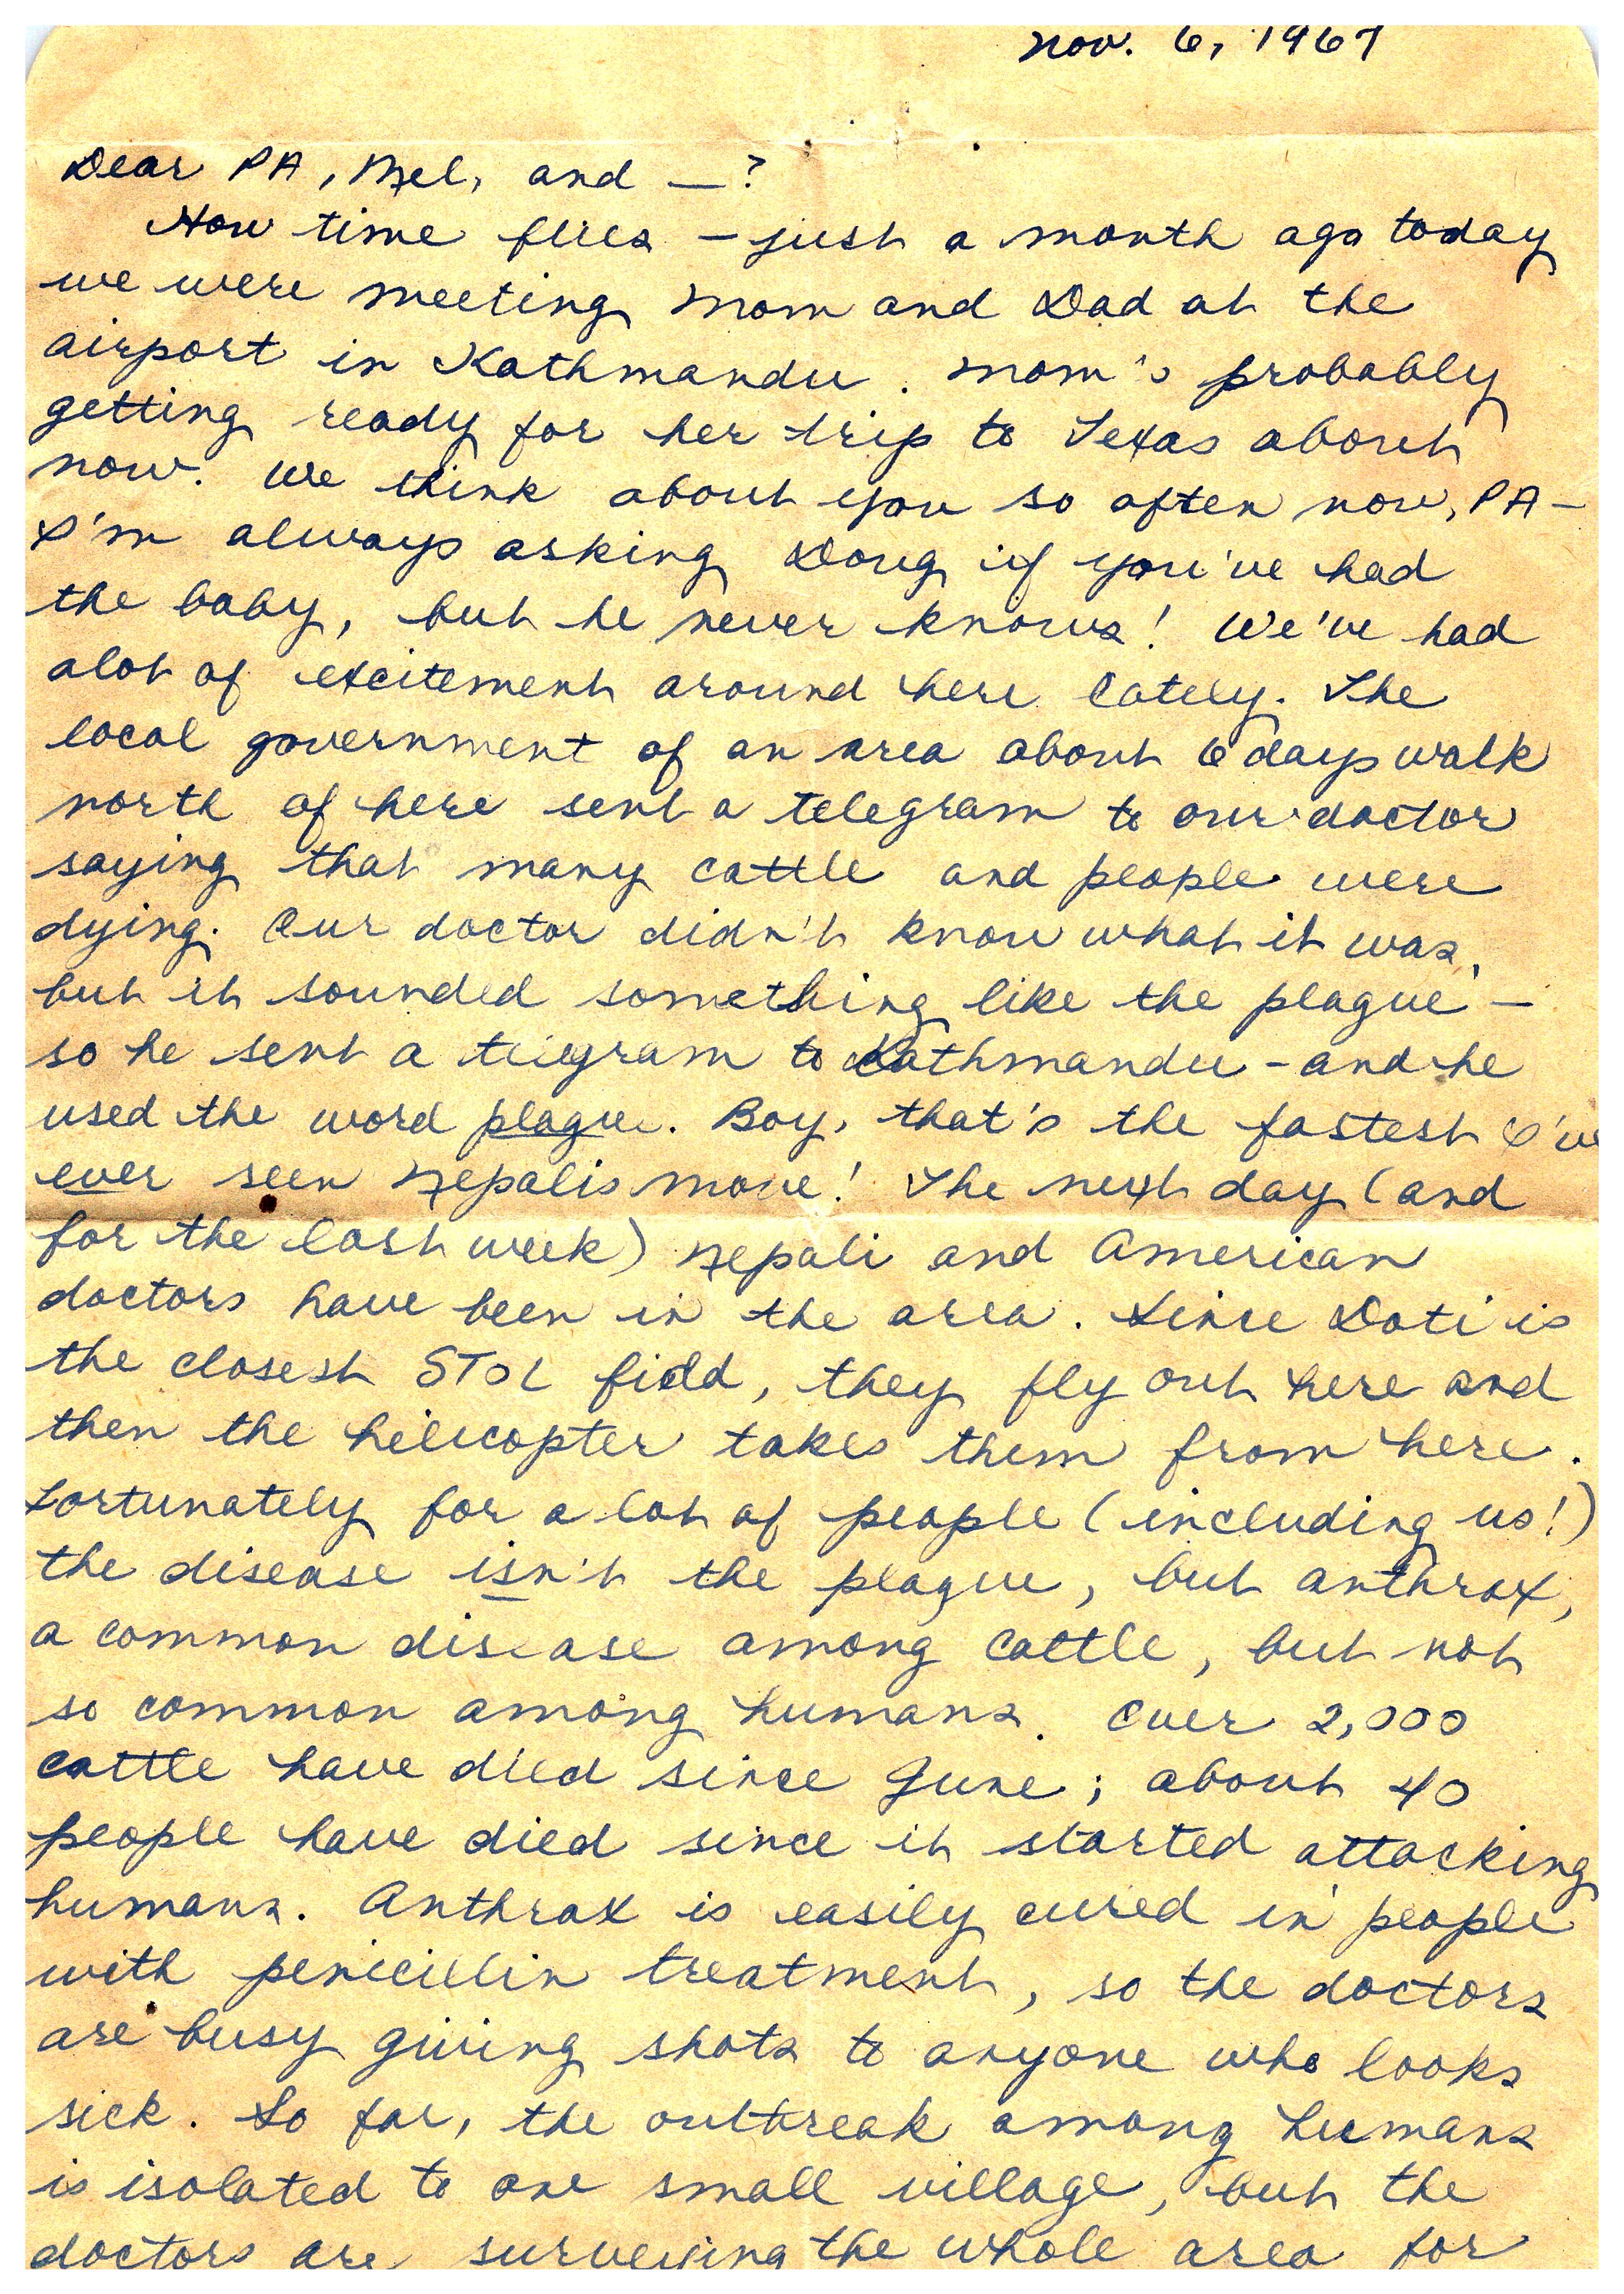 Nov. 6, 1967
Dear PA, Mel, and — ?
How time flies — just a month ago today
we were meeting Mom and Dad at the
airport in Kathmandu. Mom's probably
getting ready for her trip to Texas about
now. We think about you so often now, PA —
I'm always asking Doug if you've had
the baby, but he never knows! We've had
alot of excitement around here lately. The
local government of an area about 6 days walk
north of here sent a telegram to our doctor
saying that many cattle and people were
dying. Our doctor didn't know what it was,
but it sounded something like the plague —
so he sent a telegram to Kathmandu - and he
used the word plague. Boy, that's the fastest I've
ever seen Nepalis move! The next day (and
for the last week) Nepali and American
doctors have been in the area. Since Doti is
the closest STOL field, they fly out here and
then the helicopter takes them from here.
Fortunately for a lot of people (including us!)
the disease isn't the plague, but anthrax,
a common disease among cattle, but not
so common among humans. Over 2,000
cattle have died since June; about 40
people have died since it started attacking
humans. Anthrax is easily cured in people
with penicillin treatment, so the doctors
are busy giving shots to anyone who looks
sick. So far, the outbreak among humans
is isolated to one small village, but the
doctors are surveying the whole area for